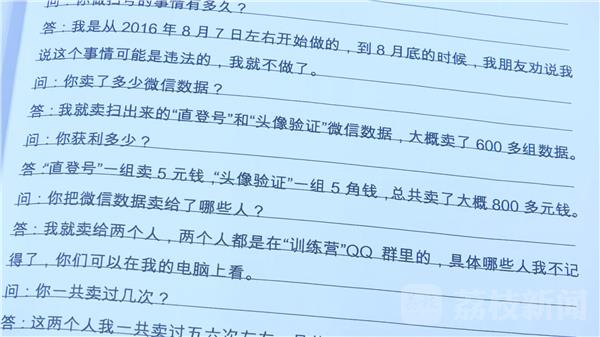 问：你做扫号的事情有多久？
答：我是从 2016 年 8 月 7 日左右开始做的，到 8 月底的时候，我朋友劝说我
说这个事情可能是违法的，我就不做了。
问：你卖了多少微信数据？
答：我就卖扫出来的“直登号”和“头像验证”微信数据，大概卖了 600 多组数据。
问：你获利多少？
答：“直登号”一组卖 5 元钱，“头像验证”一组 5 角钱，总共卖了大概 800 多元钱。
问：你把微信数据卖给了哪些人？
答：我就卖给两个人，两个人都是在“训练营”QQ 群里的，具体哪些人我不记
得了，你们可以在我的电脑上看。
问：你一共卖过几次？
答：这两个人我一共卖过五六次左右
荔枝新闻